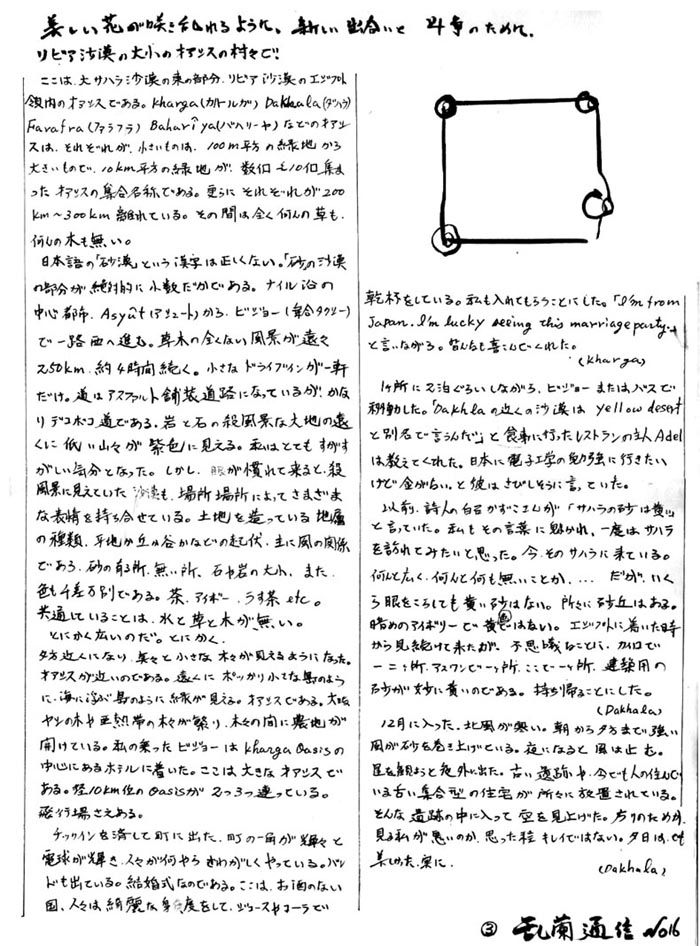 美しい花が咲き乱れるように、新しい出会いと斗争のために、
リビア沙漠の大小のオアシスの村々で!
ここは、大サハラ沙漠の東の部分、リビア沙漠のエジプト
領内のオアシスである。Kharga(カルールガ) Dakhala(ダハラ)
Farafra(ファラフラ) Bahariya(バハリーヤ)などのオアシ
スは、それぞれが、小さいものは、100m平方の緑地から
大きいもので、10km平方の緑地が、数個~10個、集ま
った オアシスの集合名称である。更らに それぞれが200
km~300km離れている。その間は全く何んの草も、
何んの木も無い。
日本語の「砂漠」という漢字は正しくない。「砂」の沙漠
の部分が絶対的に小数だからである。ナイル沿の
中心都市、Asyût(アシュート)から、ビジョー(乗合タクシー)
で一路西へ進む。草木の全くない風景が遠々
250km、約4時間続く。小さなドライブインが一軒
だけ。道はアスファルト舗装道路になっているが、かな
りデコボコ道である。岩と石の殺風景な大地の遠
くに低い山々が紫色に見える。私はとても すがす
がしい気分となった。しかし、眼が慣れて来ると、殺
風景に見えていた沙漠も、場所場所によってさまざま
な表情を持ち合せている。土地を造っている地層
の種類、平地か丘か谷かなどの起伏、主に風の関係
である、砂の有る所、無い所、石や岩の大小、また、
色も千差万別である。茶、アイボリー、うす茶 etc。
共通していることは、水と草と木が、無い。
とにかく広いのだ。とにかく、
夕方近くになり、長々と小さな木々が見えるようになった。
オアシスが近いのである。遠くに ポッカリ小さな島のよう
に、海に浮ぶ島のように緑が見える。オアシスである。大玫
ヤシの木や亜熱帯の木々が繁り、木々の間に農地が
開けている。私の乗った ビジョーは Kharga Oasisの
中心にあるホテルに着いた。ここは 大きな オアシスで
ある。径10km位のOasisが 2つ3つ連っている。
飛行場さえある。
チェックインを済して町に出た。町の一角が輝々と
電球が輝き、人々が何やら さわがしくやっている。バン
ドも出ている。結婚式なのである。ここは、お酒のない
国、人々は、綺麗な身仕度をして、ジュースやコーラで
乾杯をしている。私も入れてもらうことにした。「I'm from
Japan. I'm lucky seeing this marriage party.」
と言いながら。皆んなも喜こんでくれた。
(Kharga)
1ヶ所に2泊ぐらいしながら、ビジョーまたはバスで
移動した。「Dakhlaの近くの沙漠は yellow desert
と別名で言うんだ」と食事に行ったレストランの主人Adel
は教えてくれた。日本に電子工学の勉強に行きたい
けど金がない。と彼はさびしそうに言っていた。
以前、詩人の白石かずこさんが「サハラの砂は黄い」
と言っていた。私もその言葉に魅かれ、一度はサハラ
を訪れてみたいと思った。今、そのサハラに来ている。
何んと広く、何んと何も無いことか、... だが、いく
ら眼をこらしても黄い砂はない。所々に砂丘はある。
暗めのアイボリーで黄色はない。エジプトに着いた時
から見続けて来たが、不思議なことに、カイロで
一二ヶ所、アスワンで一ヶ所、ここで一ヶ所、建築用の
砂が妙に黄いのである。持ち帰ることにした。
(Dakhala)
12月に入った。北風が寒い。朝から夕方まで、強い
風が砂を巻き上げている。夜になると 風は止む。
星を観ようと夜外に出た。古い遺跡や、今でも人の住んで
いる古い集合型の住宅が所々に放置されている。
そんな遺跡の中に入って空を見上げた。
見る私が悪いのか、思った程キレイではない。夕日は、とても
美しかった、実に、
(Dakhala)
③ 乱蘭通信 No16